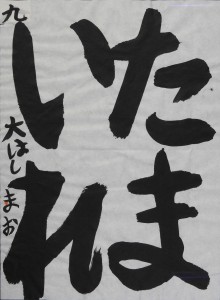 たま
いれ
九 大はし まお